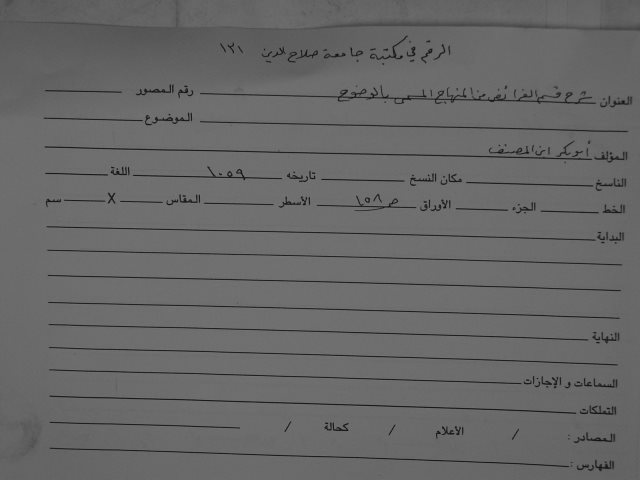 الرقم في مكتبة جامعة صلاح الدين ١٢١
العنوان شرح قسم الفرائض من المنهاج المسمى بالوضوح رقم المصور
الموضوع
المؤلف أبو بكر ابن المصنف
الناسخ مكان النسخ تاريخه ١٠٥٩ اللغة
الخط الجزء الأوراق ١٥٨ ص الأسطر المقاس X سم
البداية
النهاية
السماعات و الإجازات
التملكات
المصادر : / الأعلام / كحالة /
الفهارس :